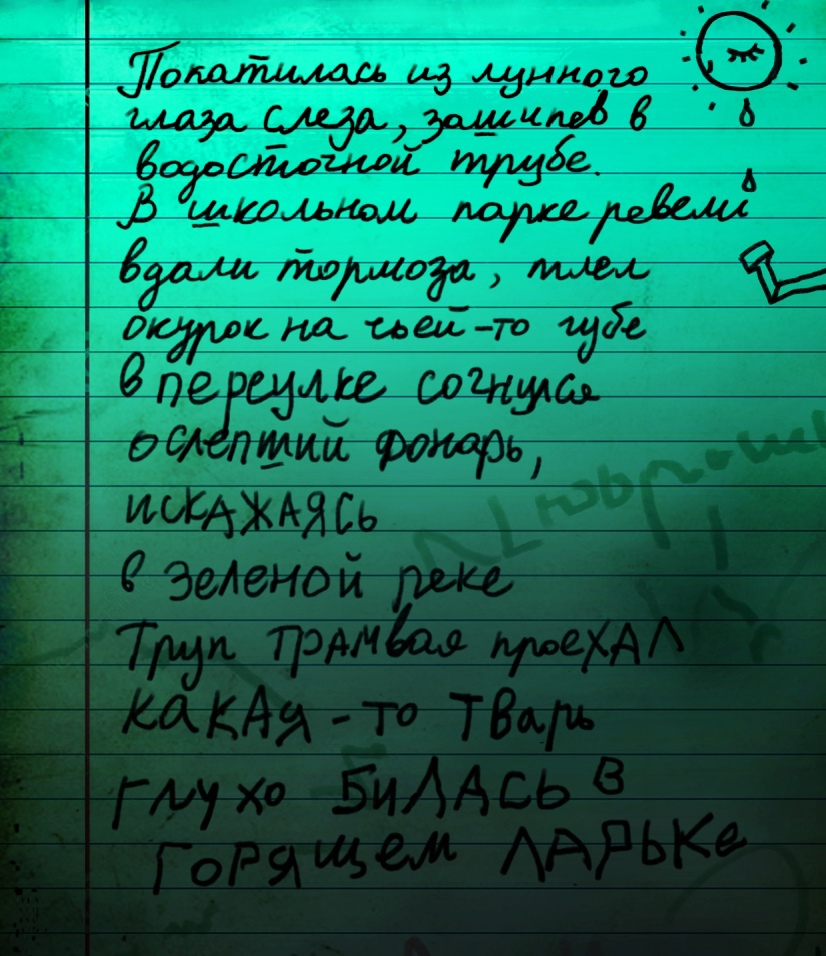 Покатилась из лунного
глаза слеза, зашипев в
водосточной трубе.
В школьном парке ревели
вдали тормоза, тлел
окурок на чьей-то губе
в переулке согнулся
ослепший фонарь,
искажаясь
в зеленой реке
Труп трамвая проехал
какая-то тварь
глухо билась в
горящем ларьке